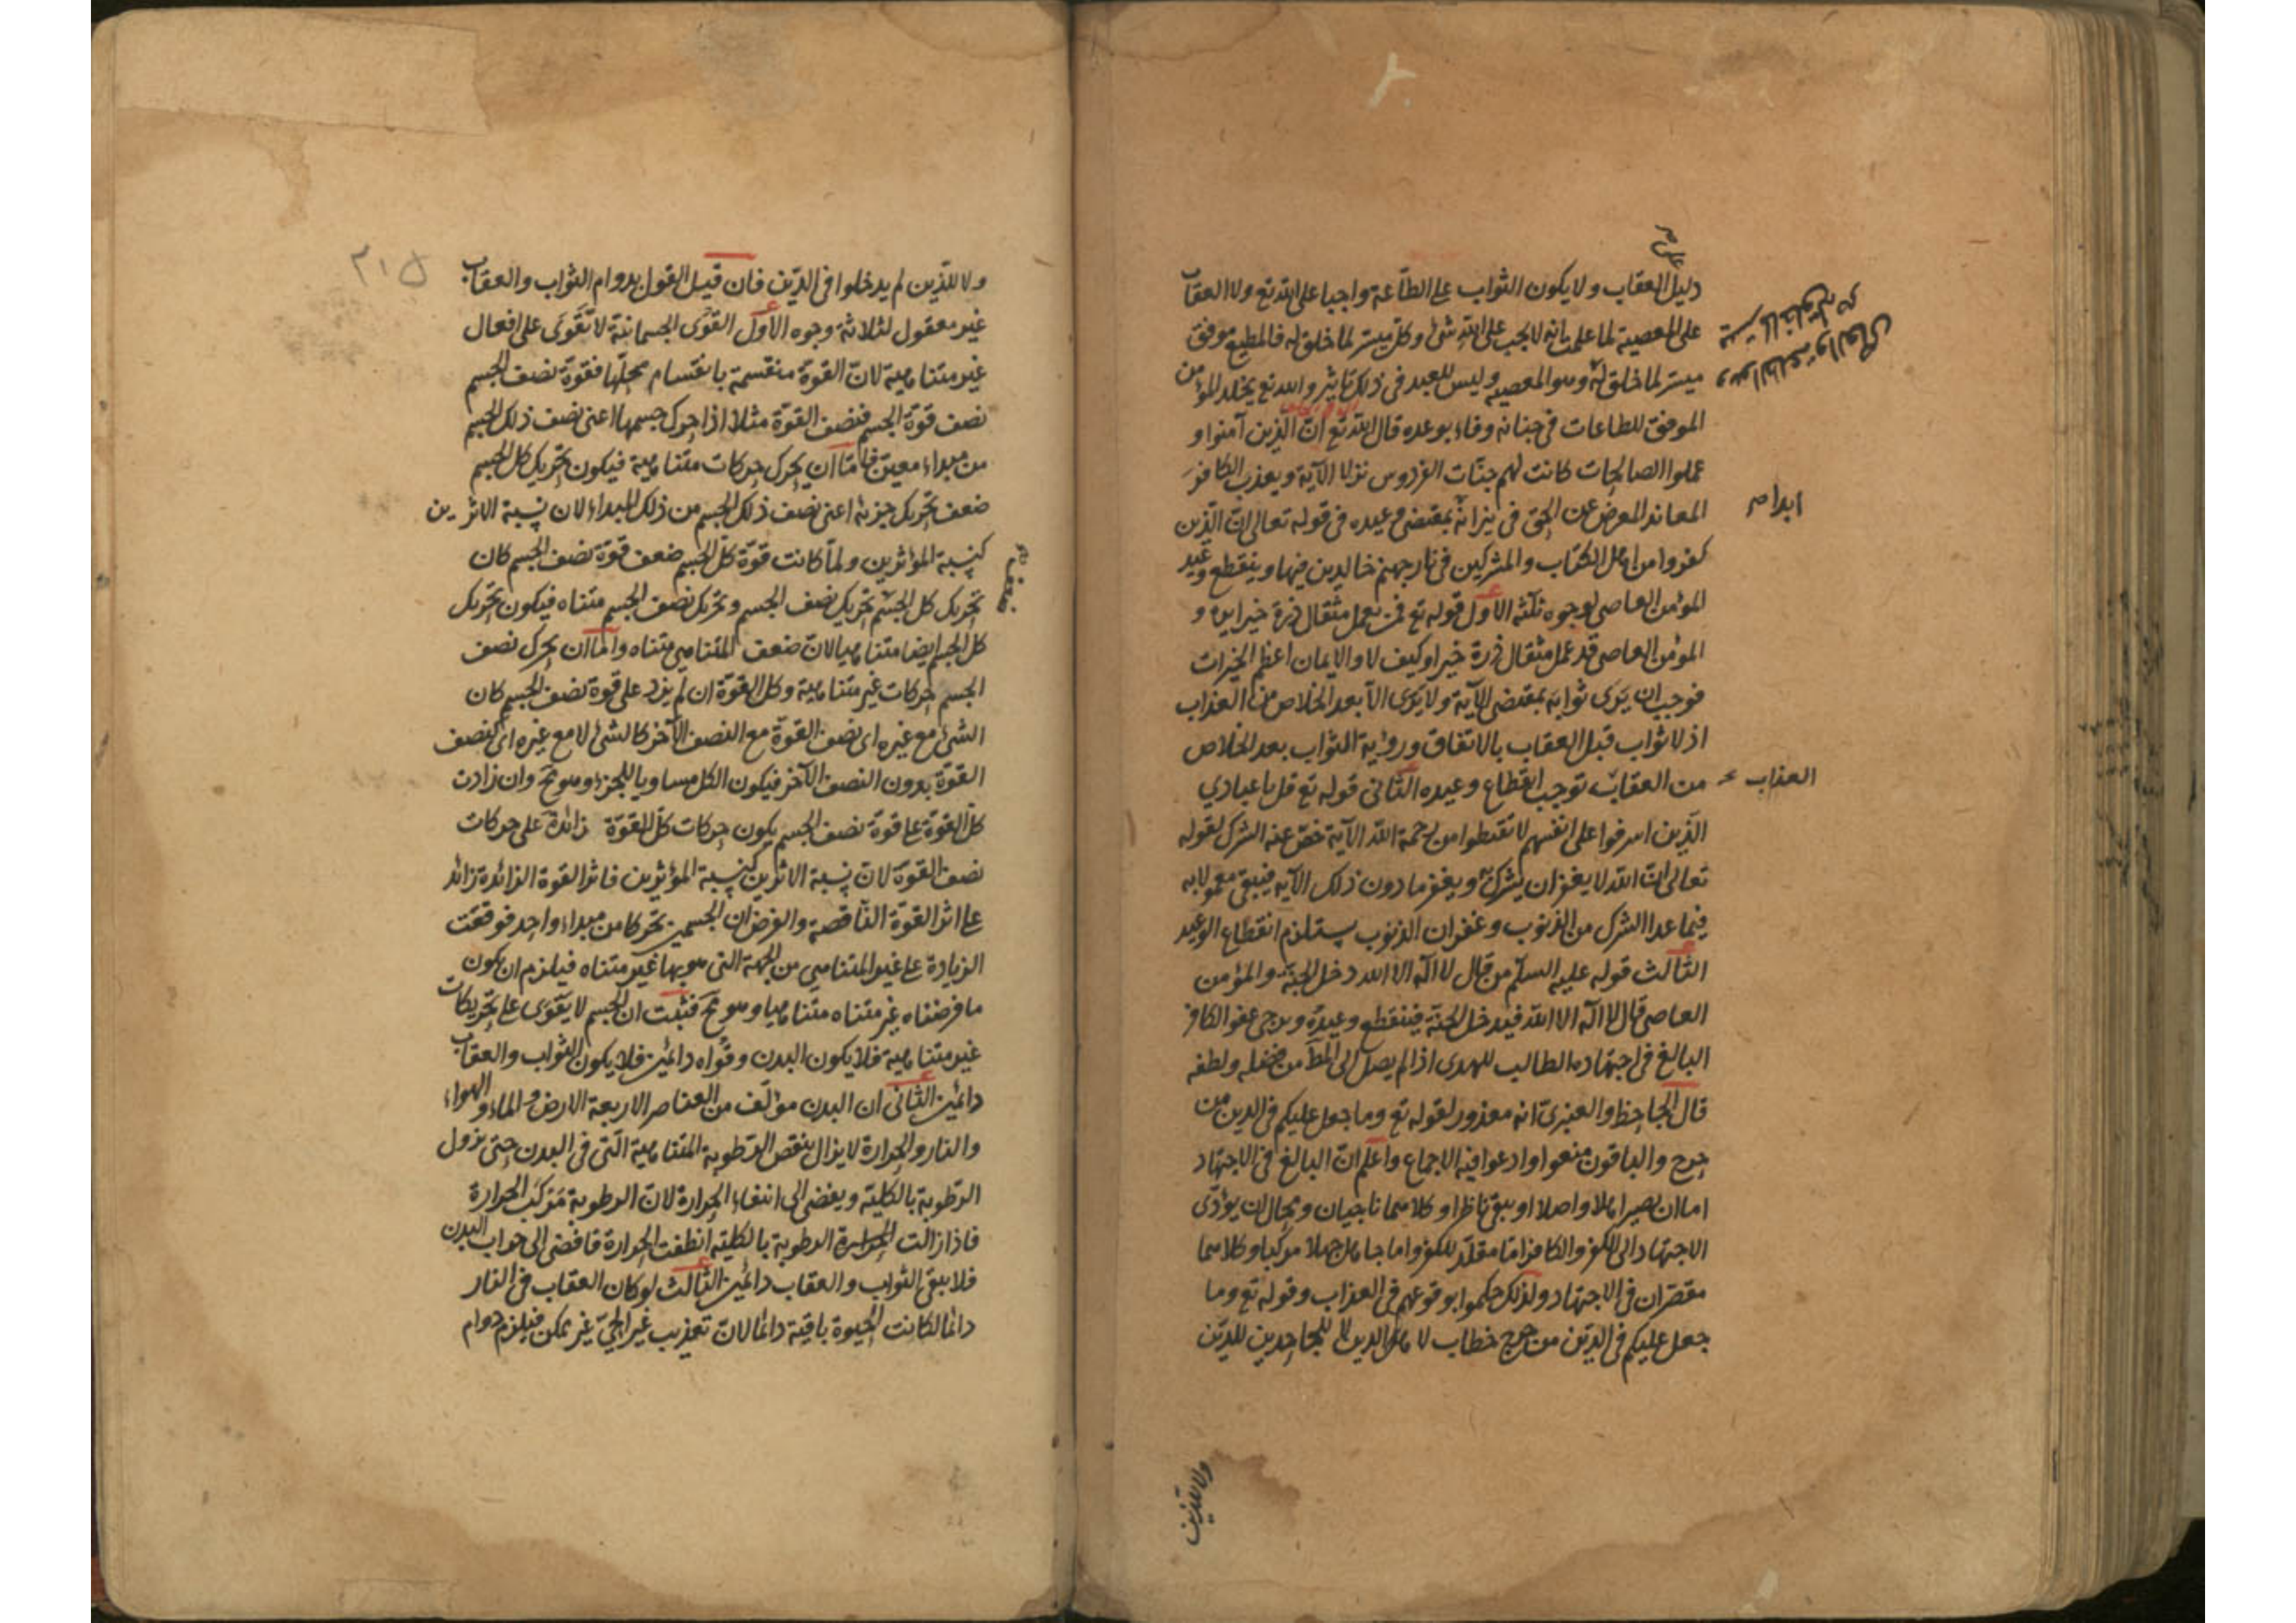 على
دليل العقاب ولا يكون الثواب على الطاعة واجبا على الله تع ولا العقاب
على المعصية لما علمت انه لا يجب على الله شئ وكل ميسر لما خلق له فالمطيع موفق
ميسر لما خلق له وهو الطاعة والعاصي
ميسر لما خلق له وهو المعصية وليس للعبد في ذلك تاثير والله تع يخلد المؤمن
الموفق للطاعات في جنانه وفاء بوعده قال الله تع ان الذين آمنوا و
عملوا الصالحات كانت لهم جنات الفردوس نزلا الآية ويعذب الكافر
المعاند المعرض عن الحق في نيرانه بمقتضى وعيده في قوله تعالى ان الذين
ابدا
كفروا من اهل الكتاب والمشركين في نار جهنم خالدين فيها وينقطع وعيد
المؤمن العاصي لوجوه ثلثة الاول قوله تع فمن يعمل مثقال ذرة خيرا يره و
المؤمن العاصي قد عمل مثقال ذرة خيرا وكيف لا والايمان اعظم الخيرات
فوجب ان يرى ثوابه بمقتضى الآية ولا يرى الا بعد الخلاص من العذاب
اذ لا ثواب قبل العقاب بالاتفاق ورؤية الثواب بعد الخلاص
من العقاب توجب انقطاع وعيده الثاني قوله تع قل يا عبادي
العذاب
الذين اسرفوا على انفسهم لا تقنطوا من رحمة الله الآية خص عنه الشرك لقوله
تعالى ان الله لا يغفر ان يشرك به ويغفر ما دون ذلك الآية فيبقى معمولا به
فيما عدا الشرك من الذنوب وغفران الذنوب يستلزم انقطاع الوعيد
الثالث قوله عليه السلم من قال لا اله الا الله دخل الجنة والمؤمن
العاصي قال لا اله الا الله فيدخل الجنة فينقطع وعيده ويرجى عفو الكافر
البالغ في اجتهاده الطالب للهدى اذا لم يصل الى المط من فضله ولطفه
قال الجاحظ والعنبري انه معذور لقوله تع وما جعل عليكم في الدين من
حرج والباقون منعوا وادعوا فيه الاجماع واعلم ان البالغ في الاجتهاد
اما ان يصير واصلا او يبقى ناظرا وكلاهما ناجيان ومحال ان يؤدى
الاجتهاد الى الكفر والكافر اما مقلد للكفر واما جاهل جهلا مركبا وكلاهما
مقصران في الاجتهاد ولذلك حكموا بوقوعهم في العذاب وقوله تع وما
جعل عليكم في الدين من حرج خطاب لاهل الدين لا للجاحدين للدين
ولا للذين
٢١٥
ولا للذين لم يدخلوا في الدين فان قيل القول بدوام الثواب والعقاب
غير معقول لثلاثة وجوه الاول القوى الجسمانية لا تقوى على افعال
غير متناهية لان القوة منقسمة بانقسام محلها فقوة نصف الجسم
نصف قوة الجسم فنصف القوة مثلا اذا حرك جسمها اعنى نصف ذلك الجسم
من مبداء معين فاما ان يحرك حركات متناهية فيكون تحريك كل الجسم
ضعف تحريك جزءه اعنى نصف ذلك الجسم من ذلك المبداء لان نسبة الاثرين
كنسبة المؤثرين ولما كانت قوة كل الجسم ضعف قوة نصف الجسم كان
ضعف
تحريك كل الجسم تحريك نصف الجسم وتحريك نصف الجسم متناه فيكون تحريك
كل الجسم ايضا متناهيا لان ضعف المتناهي متناه واما ان يحرك نصف
الجسم حركات غير متناهية وكل القوة ان لم يزد على قوة نصف الجسم كان
الشئ مع غيره اى نصف القوة مع النصف الآخر كالشئ لا مع غيره اى كنصف
القوة بدون النصف الآخر فيكون الكل مساويا للجزء وهو مح وان زادت
كل القوة على قوة نصف الجسم يكون حركات كل القوة زائدة على حركات
نصف القوة لان نسبة الاثرين كنسبة المؤثرين فاثر القوة الزائدة زائد
على اثر القوة الناقصة والفرض ان الجسمين تحركا من مبداء واحد فوقعت
الزيادة على غير المتناهي من الجهة التى هو بها غير متناه فيلزم ان يكون
ما فرضناه غير متناه متناهيا وهو مح فثبت ان الجسم لا يقوى على تحريكات
غير متناهية فلا يكون البدن وقواه دائمين فلا يكون الثواب والعقاب
دائمين الثانى ان البدن مؤلف من العناصر الاربعة الارض والماء والهواء
والنار والحرارة لا يزال ينقص الرطوبة المتناهية التى في البدن حتى يزول
الرطوبة بالكلية ويفضى الى انتفاء الحرارة لان الرطوبة مركب الحرارة
فاذا زالت الحرارة الرطوبة بالكلية انطفت الحرارة فافضى الى خراب البدن
فلا يبقى الثواب والعقاب دائمين الثالث لو كان العقاب في النار
دائما لكانت الحيوة باقية دائما لان تعذيب غير الحي غير ممكن فيلزم دوام